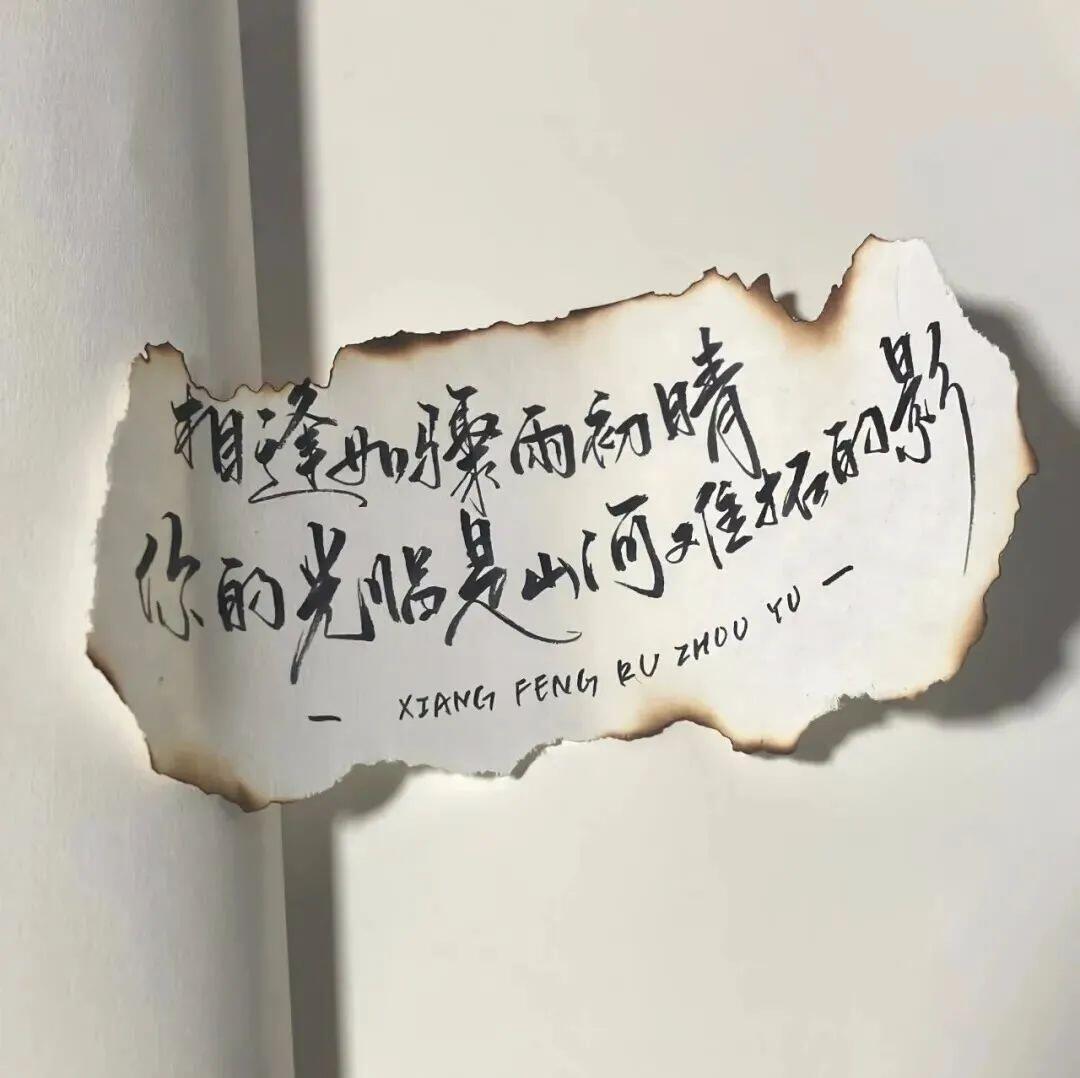 相逢如骤雨初晴
你的光临是山河难拓的影
— XIANG FENG RU ZHOU YU —